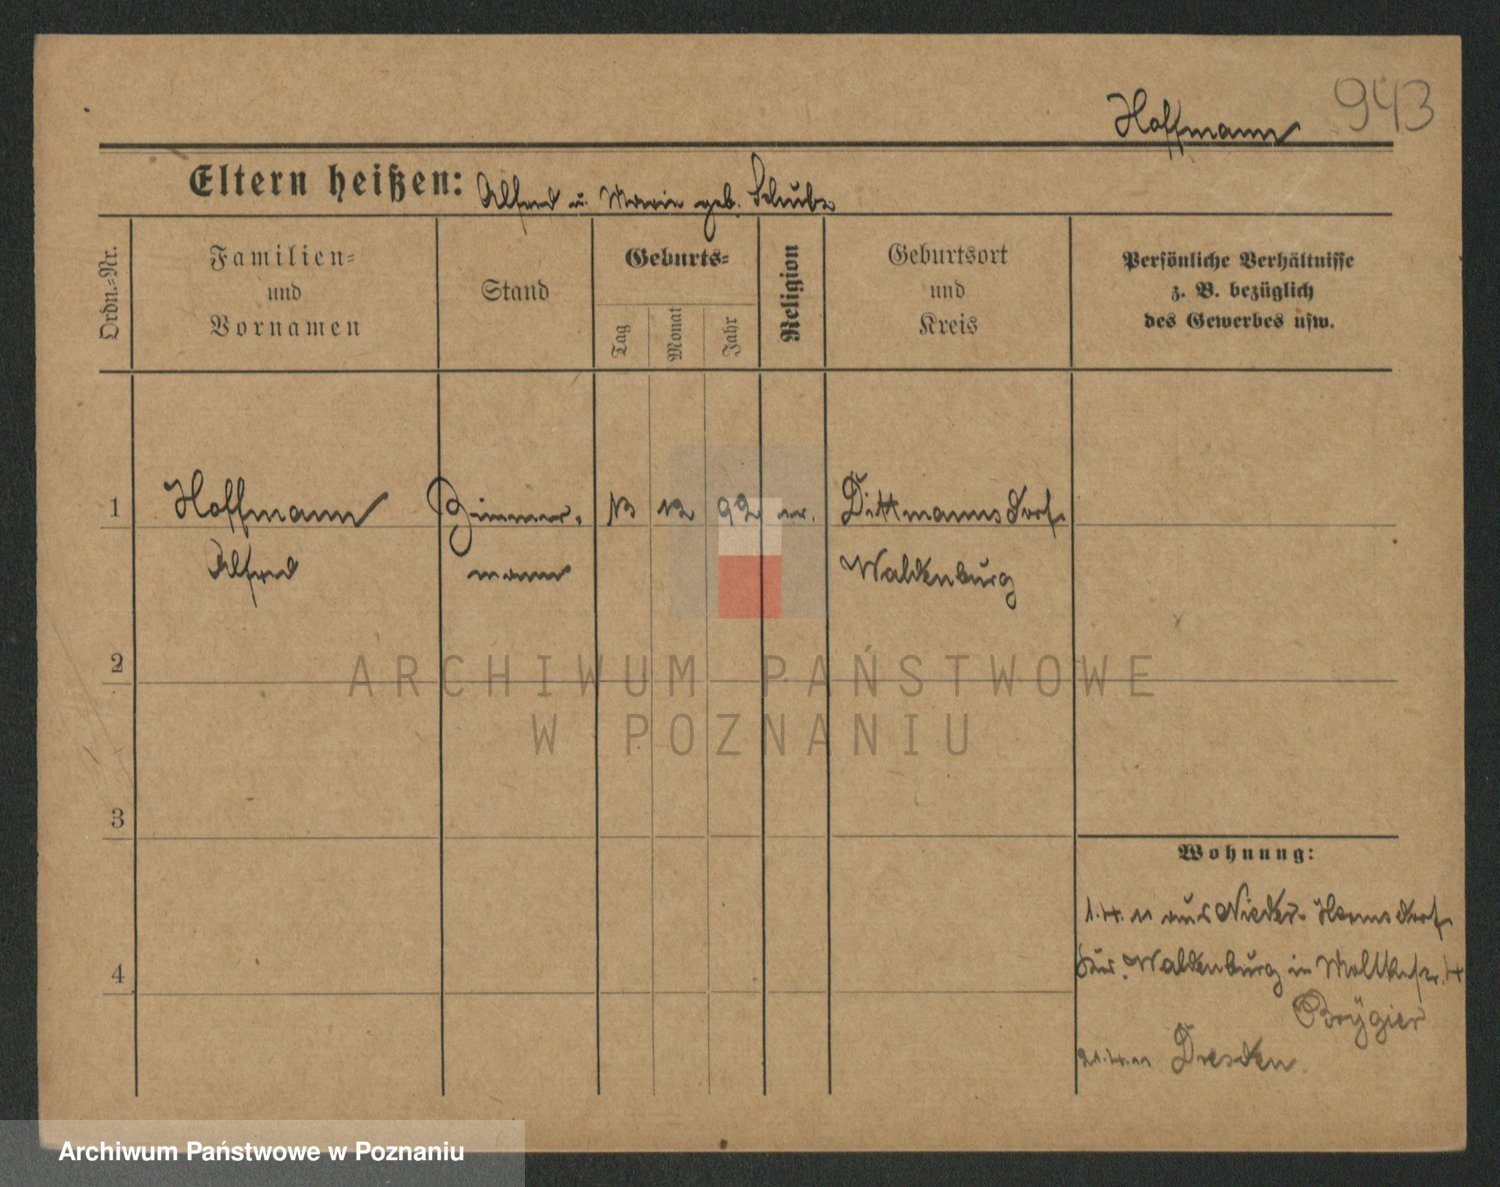 Hoffmann 943
Eltern heißen: Alfred u. Marie geb. Schubr
Ordn.-Nr.
Familien-
und
Vornamen
Stand
Geburts-
Tag
Monat
Jahr
Religion
Geburtsort
und
Kreis
Persönliche Verhältnisse
z. B. bezüglich
des Gewerbes usw.
1 Hoffmann Zimmer- 13 12 92 ev. Dittmannsdorf
Alfred mann Waldenburg
2
3
4
Wohnung:
1.4.11 aus Nieder-Hermsdorf
Waldenburg in Moltkestr. 4
21.4.11 Dresden
ARCHIWUM PAŃSTWOWE
W POZNANIU
Archiwum Państwowe w Poznaniu